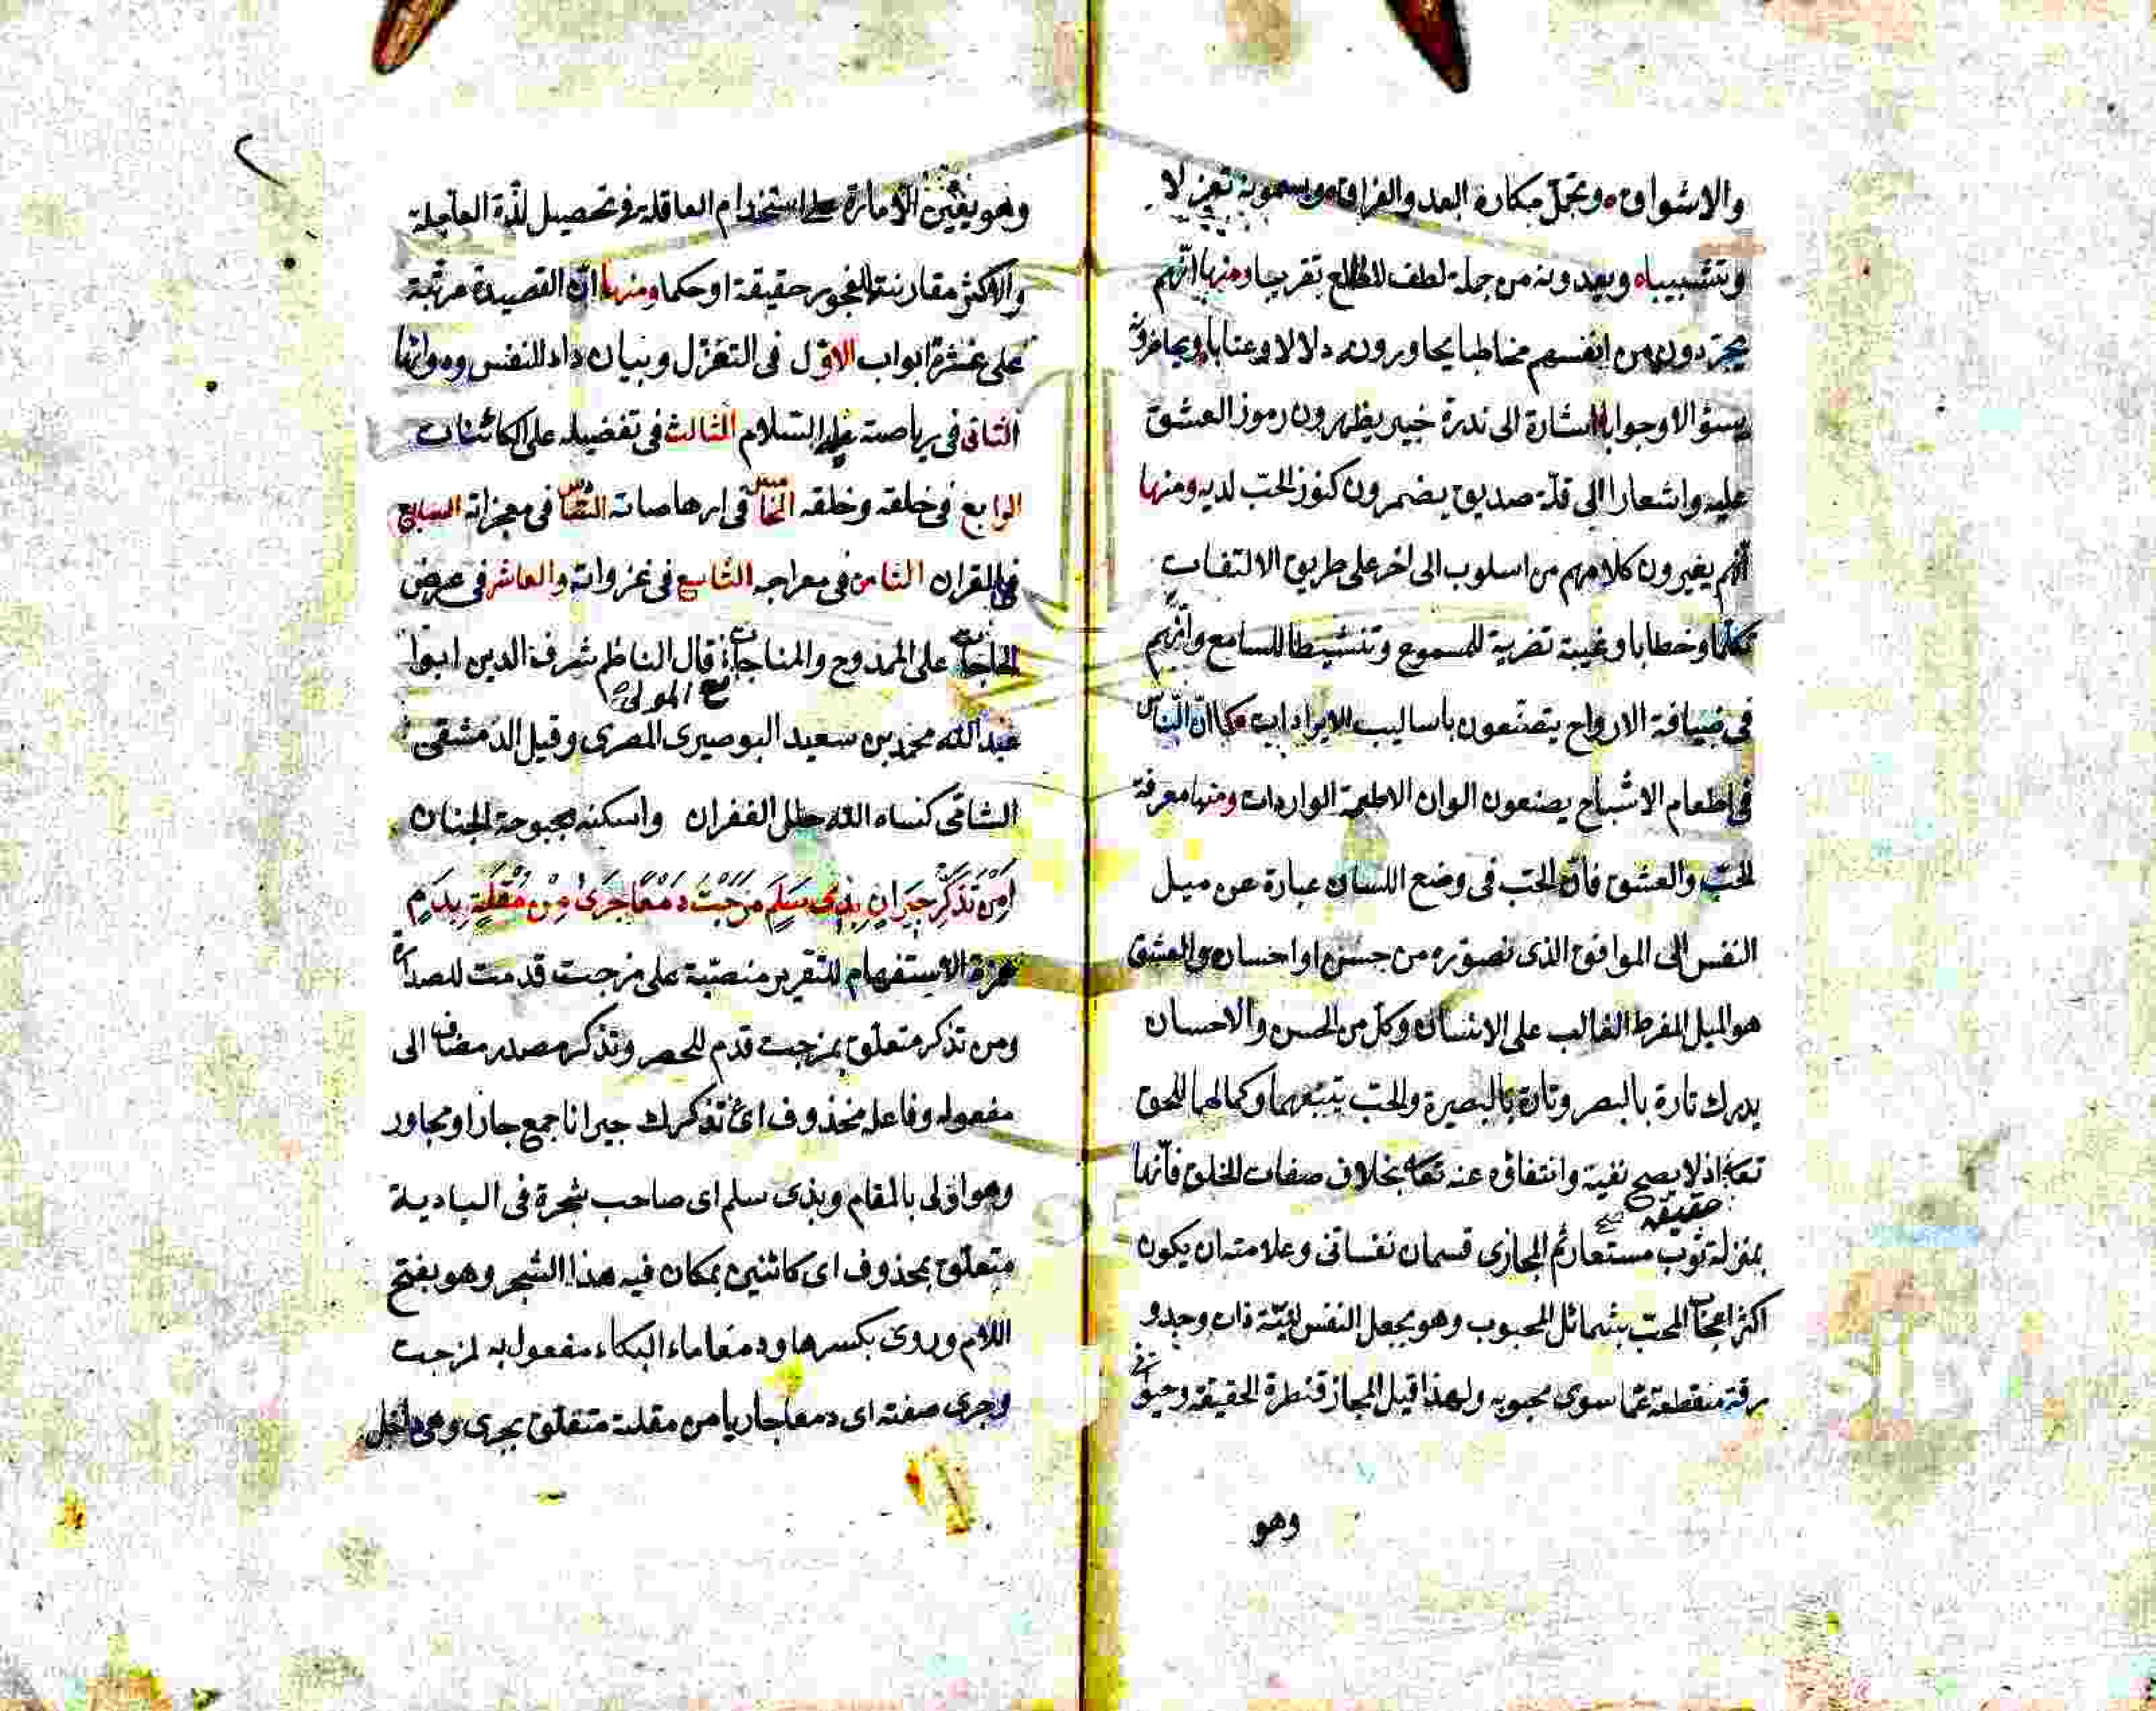 والاشواق وتحمل مكاره البعد والفراق ويسمونه تغزلا
وتشبيبا ويعدونه من جملة لطف المطلع تقريبا ومنها انهم
يجردون من انفسهم مخاطبا يحاورونه دلالا وعتابا
سؤالا وجوابا اشارة الى ندرة خبير يظهرون رموز العشق
عليه واشعارا الى قلة صديق يضمرون كنوز الحب لديه ومنها
انهم يغيرون كلامهم من اسلوب الى اخر على طريق الالتفات
تكلما وخطابا وغيبة تضرية للمسموع وتنشيطا للسامع وانهم
فى ضيافة الارواح يتصنعون باساليب الايرادات كما ان الناس
فى اطعام الاشباح يصنعون الوان الاطعمة الواردات ومنها معرفة
الحب والعشق فان الحب فى وضع اللسان عبارة عن ميل
النفس الى الموافق الذى تصوره من حسن او احسان والعشق
هو الميل المفرط الغالب على الانسان وكل من الحسن والاحسان
يدرك تارة بالبصر وتارة بالبصيرة والحب يتبعهما وكمالهما للحق
تعا اذ لا يصح نفيه وانتفاؤه عنه تعا بخلاف صفات الخلق فانها
حقيقة صح
بمنزلة ثوب مستعار ثم المجازى قسمان نفسانى وعلامته ان يكون
اكثر اعجاب المحب بشمائل المحبوب وهو يجعل النفس لينة ذات وجد و
رقة منقطعة عما سوى محبوبه ولهذا قيل المجاز قنطرة الحقيقة
وهو
وهو يعين الامارة على استخدام العاقلة فى تحصيل لذة العاجلة
والاكثر مقارنته الفجور حقيقة او حكما ومنها ان القصيدة مرتبة
على عشرة ابواب الاول فى التغزل وبيان داء النفس ودوائها
الثانى فى رياضته عليه السلام الثالث فى تفضيله على الكائنات
الرابع فى خلقه وخلقه الخامس فى ارهاصاته السادس فى معجزاته السابع
فى القران الثامن فى معراجه التاسع فى غزواته والعاشر فى عرض
الحاجات على الممدوح والمناجات قال الناظم شرف الدين ابو
مع المولى
عبد الله محمد بن سعيد البوصيرى المصرى وقيل الدمشقى
كساه الله حلل الغفران واسكنه بحبوحة الجنان
اَمِنْ تَذَكُّرِ جِيرَانٍ بِذِى سَلَمِ مَزَجْتَ دَمْعًا جَرَى مِنْ مُقْلَةٍ بِدَمِ
همزة الاستفهام للتقرير منصبة على مزجت قدمت للصدارة
ومن تذكر متعلق بمزجت قدم للحصر وتذكر مصدر مضاف الى
مفعوله وفاعله محذوف اى تذكرك جيرانا جمع جار او مجاور
وهو اولى بالمقام وبذى سلم اى صاحب شجرة فى البادية
متعلق بمحذوف اى كائنين بمكان فيه هذا الشجر وهو بفتح
اللام وروى بكسرها ودمعا ماء البكاء مفعول به لمزجت
وجرى صفته اى دمعا جاريا من مقلة متعلق بجرى وهى داخل